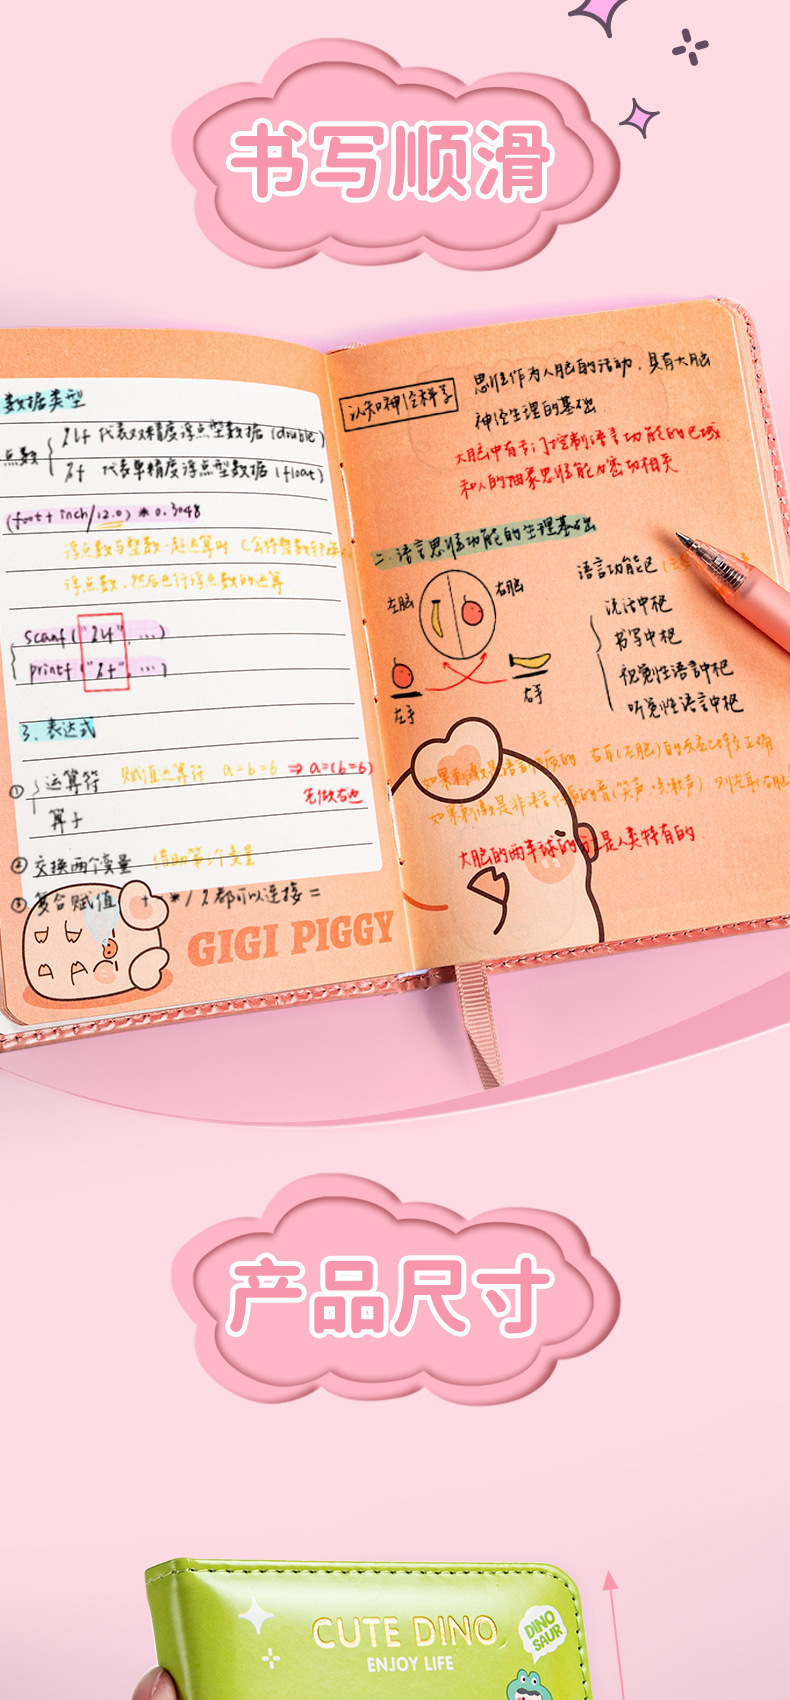 书写顺滑
数据类型
点数
%lf 代表双精度浮点型数据 (double)
%f 代表单精度浮点型数据 (float)
(foot + inch/12.0) * 0.3048
浮点数与整数一起运算时
浮点数,然后进行浮点数的运算
scanf ("%lf", ...)
printf ("%f", ...)
3. 表达式
① 运算符 赋值运算符 a=b=6 ⇒ a=(b=6)
算子
先做右边
② 交换两个变量 借助第三个变量
③ 复合赋值 + - * / % 都可以连接 =
GIGI PIGGY
认知神经科学
思维作为人脑的活动,具有大脑
神经生理的基础
大脑中有专门控制语言功能的区域
和人的抽象思维能力密切相关
二.语言思维功能的生理基础
左脑
右脑
左手
右手
语言功能区
说话中枢
书写中枢
视觉性语言中枢
听觉性语言中枢
如果刺激是语言性质的 右耳(左脑)的反应比较正确
如果刺激是非语言性质的音(笑声,咳嗽声) 则左耳(右脑
大脑的两半球的 是人类特有的
产品尺寸
CUTE DINO
ENJOY LIFE
DINO
SAUR